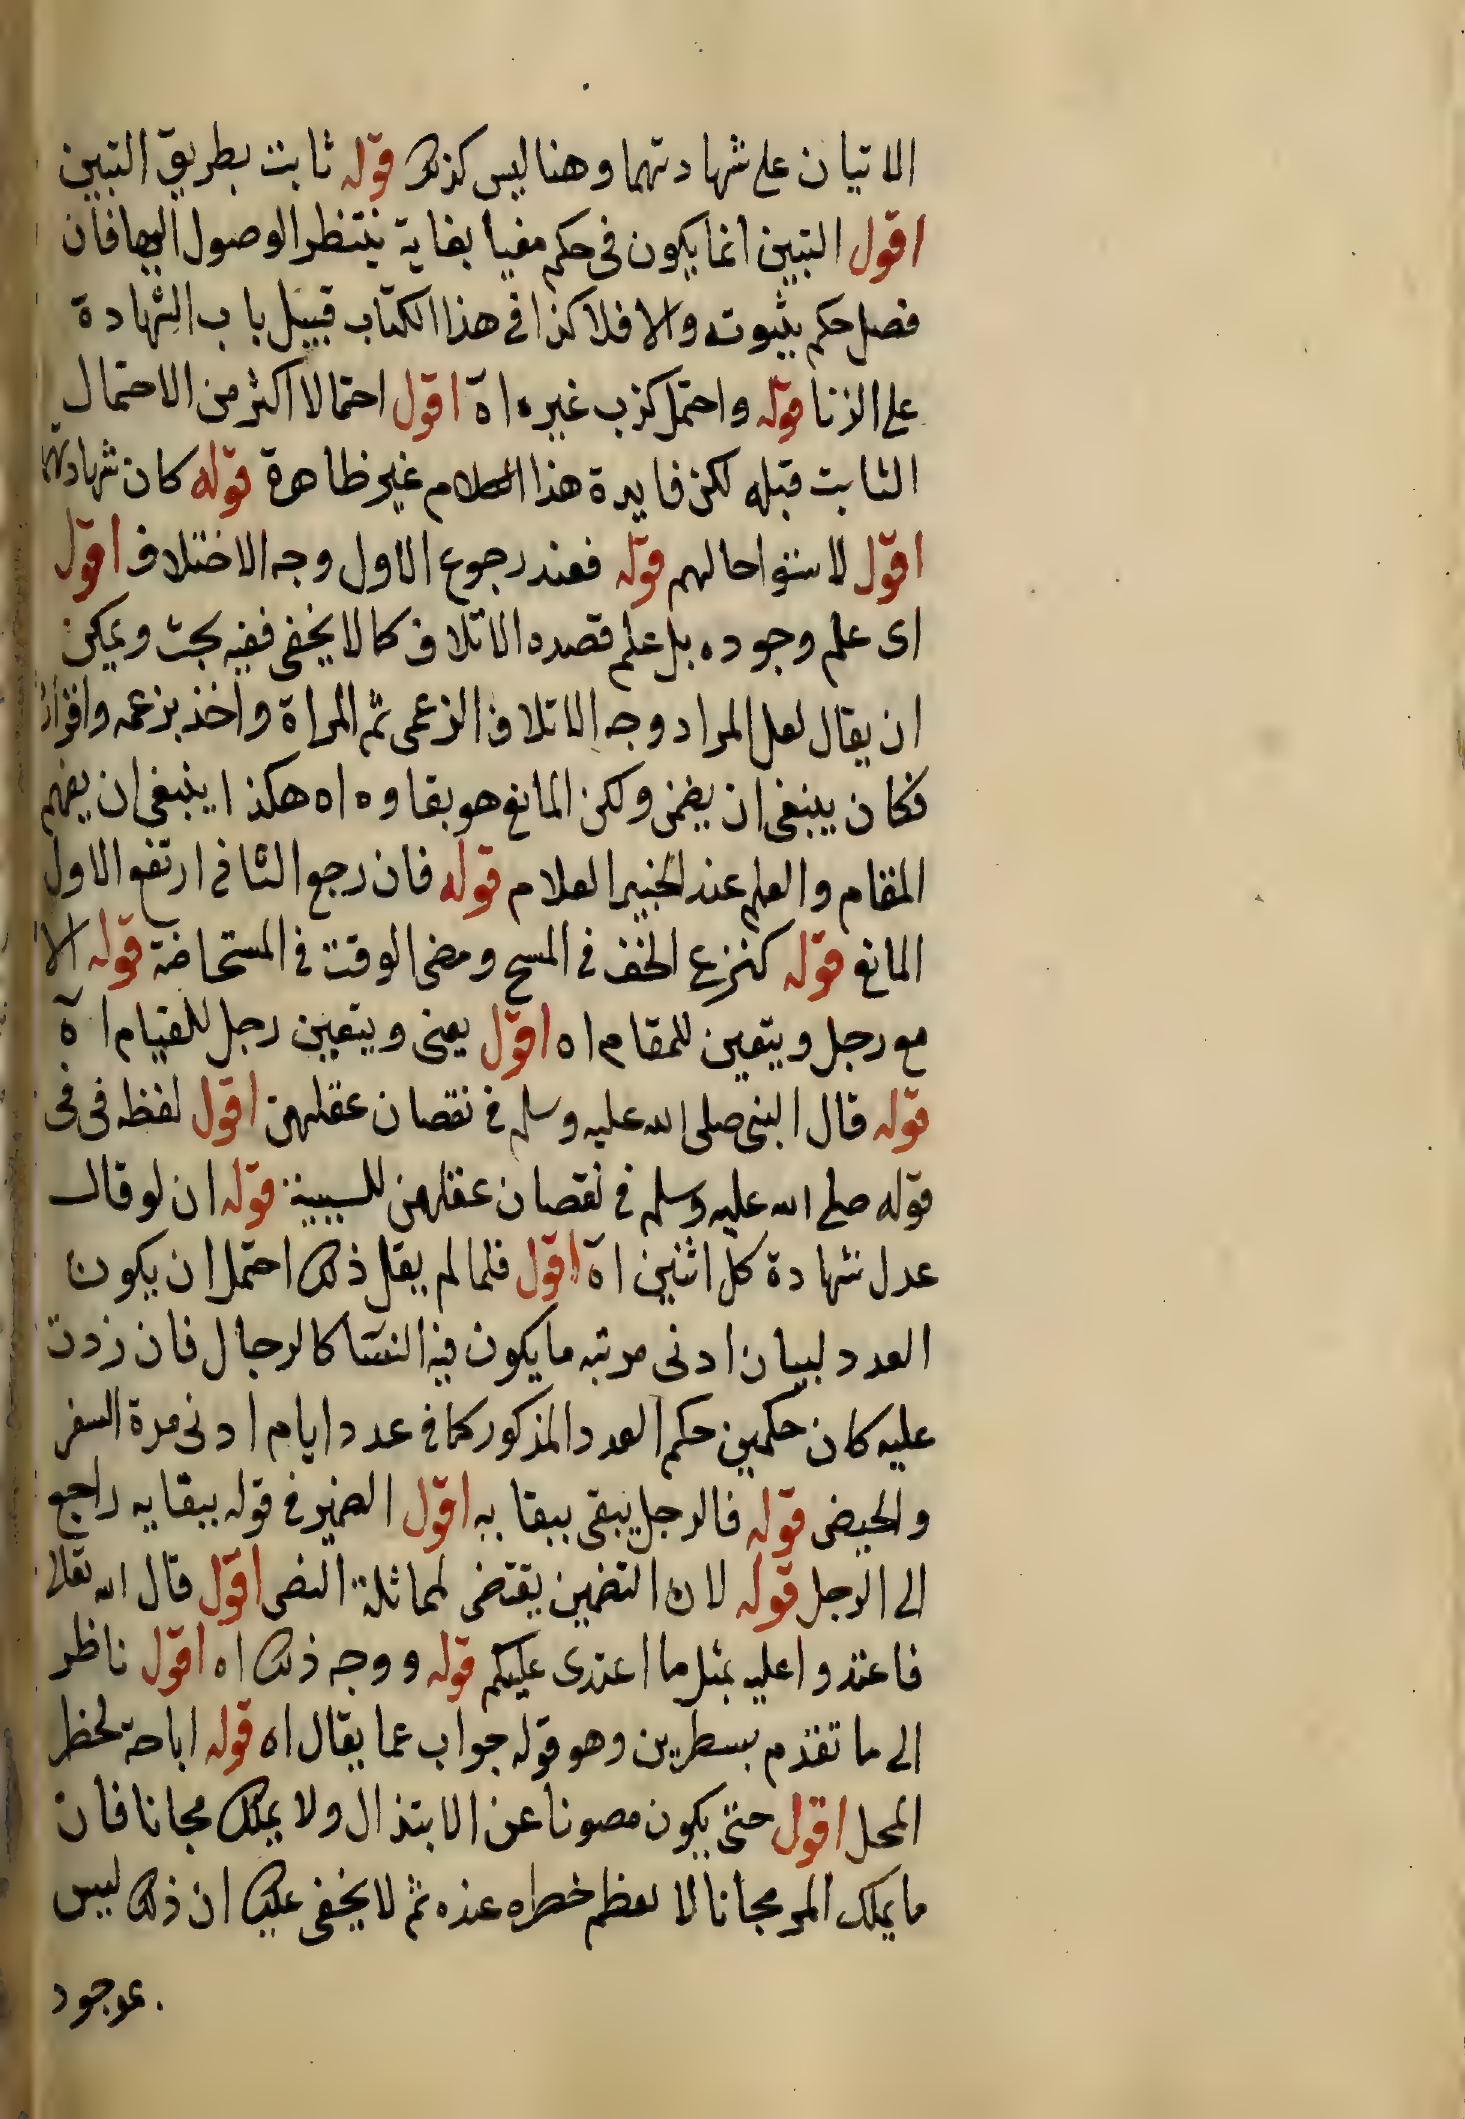 الاتيان على شهادتهما وهنا ليس كذلك قوله ثابت بطريق التبين
اقول التبين انما يكون فى حكم مغيا بغاية ينتظر الوصول اليها فان
فصل حكم بثبوته والا فلا كذا فى هذا الكتاب قبيل باب الشهادة
على الزنا قوله واحتمل كذب غيره اه اقول احتمالا اكثر من الاحتمال
الثابت قبله لكن فايدة هذا الكلام غير ظاهرة قوله كان شهادتهما
اقول لاستوا حالهم قوله فعند رجوع الاول وجه الاختلاف اقول
اى علم وجوده بل علم قصده الاتلاف كما لا يخفى ففيه بحث ويمكن
ان يقال لعل المراد وجه الاتلاف الزعمى ثم المراة واخذ بزعمه واقراره
فكان ينبغى ان يضمن ولكن المانع هو بقاوه اه هكذا ينبغى ان يفهم
المقام والعلم عند الخبير العلام قوله فان رجع الثانى ارتفع الاول
المانع قوله كنزع الخف فى المسح ومضى الوقت فى المستحاضة قوله الا
مع رجل ويتعين للمقام اه اقول يعنى ويتعين رجل للقيام اه
قوله قال النبى صلى الله عليه وسلم فى نقصان عقلهن اقول لفظه فى فى
قوله صلى الله عليه وسلم فى نقصان عقلهن للسببية قوله ان لو قال
عدل شهادة كل اثنين اه اقول فلما لم يقل ذلك احتمل ان يكون
العدد لبيان ادنى مرتبه ما يكون فيه النسا كالرجال فان زدت
عليه كان حكمين حكم العدد المذكور كما فى عدد ايام ادنى مدة السفر
والحيض قوله فالرجل يبقى ببقايه اقول الضمير فى قوله ببقايه راجع
الى الرجل قوله لان التضمين يقتضى لمماثلة النص اقول قال الله تعالى
فاعتدوا عليه بمثل ما اعتدى عليكم قوله ووجه ذلك اه اقول ناظر
الى ما تقدم بسطرين وهو قوله جواب عما يقال اه قوله اباحة لخطر
المحل اقول حتى يكون مصونا عن الابتذال ولا يملك مجانا فان
ما يملك المر مجانا لا يعظم خطره عنده ثم لا يخفى عليك ان ذلك ليس
بموجود